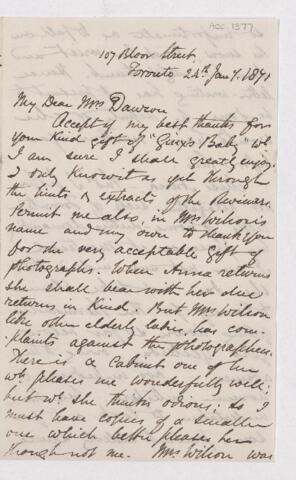 ACC. 1377
107 Bloor Street
Toronto 24th Jany. 1871
My Dear Mrs Dawson
Accept of my best thanks for
your kind gift of "Ginx's Baby" wh
I am sure I shall greatly enjoy.
I only know it as yet through
the hints & extracts of the reviewers.
Permit me also, in Mrs Wilson's
name and my own to thank you
for the very acceptable gift of
photographs. When Anna returns
she shall bear with her due
returns in kind. But Mrs Wilson
like other elderly ladies, has com-
plaints against the photographers.
There is a Cabinet one of her
wh pleases me wonderfully well;
but wh she thinks odious; so I
must have copies of a smaller
one which better pleases her
though not me. Mrs Wilson was